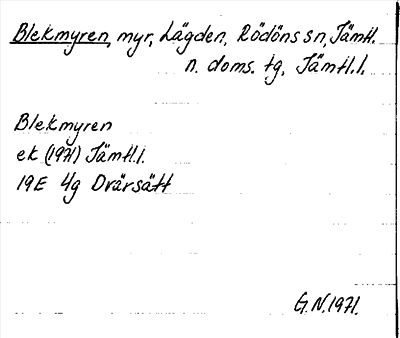 Blekmyren, myr, Lägden, Rödöns sn, Jämtl.
n. doms. tg, Jämtl.l.
Blekmyren
ek (1971) Jämtl.l.
19E 4g Dvärsätt
G.N.1971.